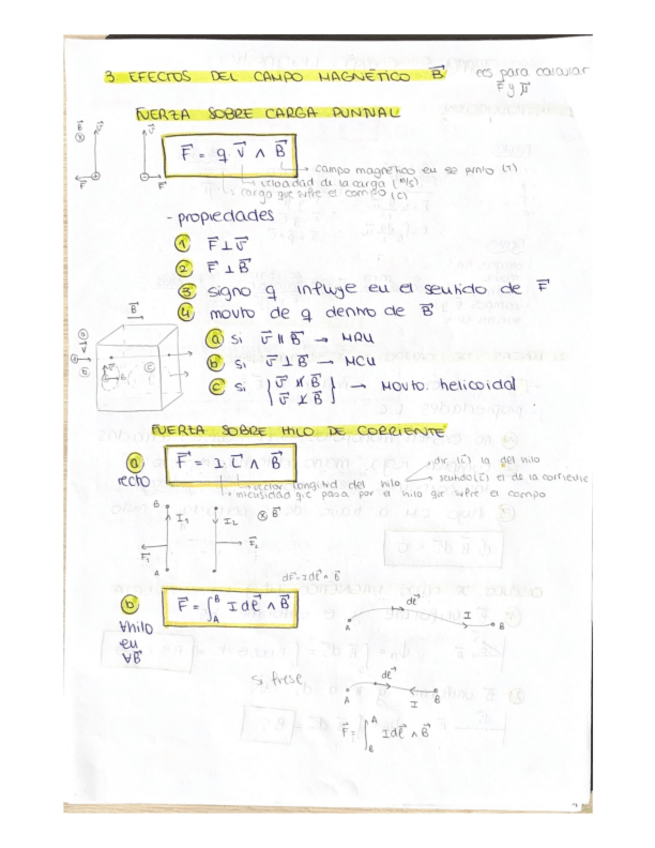 3 EFECTOS DEL CAMPO MAGNÉTICO B⃗
ecs para calcular
F⃗ y μ⃗
FUERZA SOBRE CARGA PUNTUAL
F⃗ = q · v⃗ ∧ B⃗
campo magnético en se punto (T)
velocidad de la carga (m/s)
carga que sufre el campo (C)
- propiedades
1 F⃗ ⊥ v⃗
2 F⃗ ⊥ B⃗
3 signo q influye en el sentido de F⃗
4 movto de q dentro de B⃗
a si v⃗ ∥ B⃗ → MRU
b si v⃗ ⊥ B⃗ → MCU
c si { v⃗ ∦ B⃗ v⃗ ⊥̸ B⃗ } → Movto helicoidal
B⃗
FUERZA SOBRE HILO DE CORRIENTE
a recto
F⃗ = I L⃗ ∧ B⃗
dir (L⃗) la del hilo
sentido (L⃗) el de la corriente
vector longitud del hilo
intensidad que pasa por el hilo que sufre el campo
B I₁ I₂ ⊗ B⃗
F⃗₁ F⃗₂
A
dF⃗ = I dl⃗ ∧ B⃗
b ∀hilo
en
∀B⃗
F⃗ = ∫_A^B I dl⃗ ∧ B⃗
dl⃗ I
A B
si fuese
dl⃗
A I B
F⃗ = ∫_B^A I dl⃗ ∧ B⃗